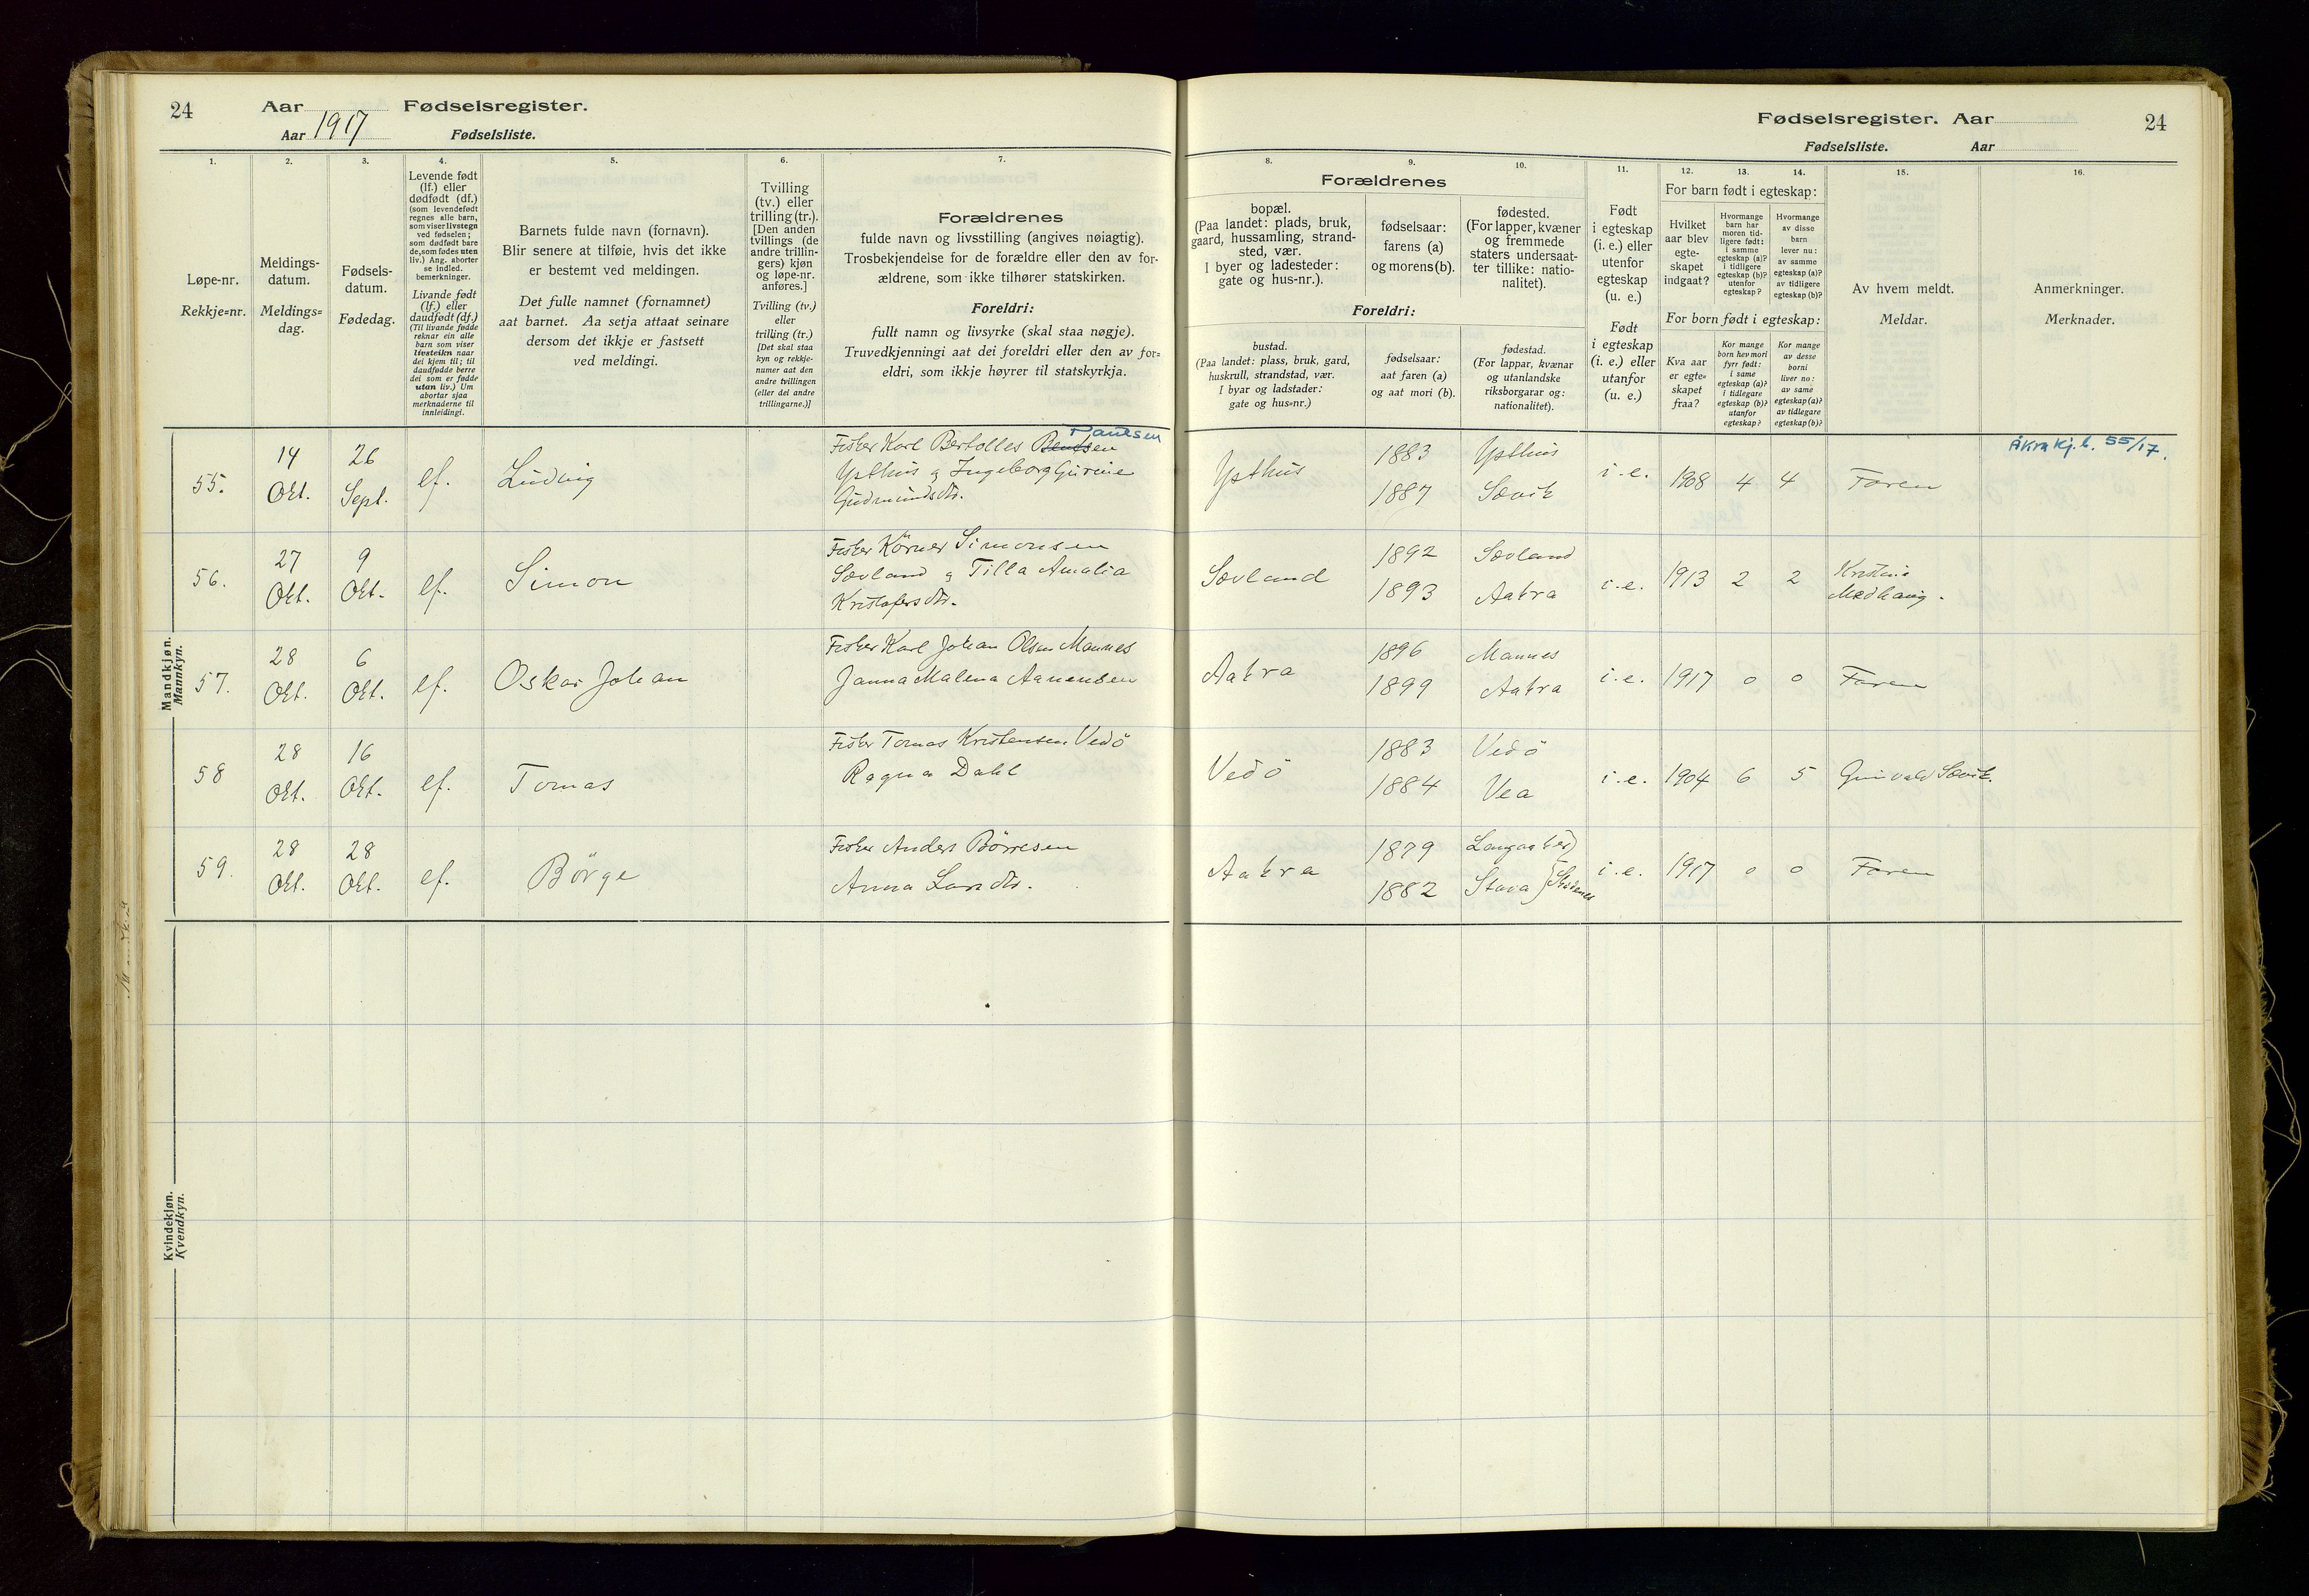 24
Aar Fødselsregister.
Aar 1917 Fødselsliste.
Fødselsregister. Aar
Fødselsliste. Aar
24
1. 2. 3. 4. 5. 6. 7.
Løpe-nr.
Rekkje=nr.
Meldings-
datum.
Meldings=
dag.
Fødsels-
datum.
Fødedag.
Levende født
(lf.) eller
dødfødt (df.)
(som levendefødt
regnes alle barn,
som viser livstegn
ved fødselen;
som dødfødt bare
de, som fødes uten
liv.) Ang. aborter
se indled.
bemerkninger.
Livande født
(lf.) eller
daudfødt (df.)
(Til livande fødde
reknar ein alle
barn som viser
livsteikn naar
dei kjem til; til
daudfødde berre
dei som er fødde
utan liv.) Um
abortar sjaa
merknaderne til
innleidingi.
Barnets fulde navn (fornavn).
Blir senere at tilføie, hvis det ikke
er bestemt ved meldingen.
Det fulle namnet (fornamnet)
aat barnet. Aa setja attaat seinare
dersom det ikkje er fastsett
ved meldingi.
Tvilling
(tv.) eller
trilling (tr.).
[Den anden
tvillings (de
andre trillin-
gers) kjøn
og løpe-nr.
anføres.]
Tvilling (tv.)
eller
trilling (tr.)
[Det skal staa
kyn og rekkje-
numer aat den
andre tvillingen
(eller dei andre
trillingarne.)]
Forældrenes
fulde navn og livsstilling (angives nøiagtig).
Trosbekjendelse for de forældre eller den av for-
ældrene, som ikke tilhører statskirken.
Foreldri:
fullt namn og livsyrke (skal staa nøgje).
Truvedkjenningi aat dei foreldri eller den av for=
eldri, som ikkje høyrer til statskyrkja.
8. 9. 10. 11. 12. 13. 14. 15. 16.
Forældrenes
bopæl.
(Paa landet: plads, bruk,
gaard, hussamling, strand-
sted, vær.
I byer og ladesteder:
gate og hus-nr.).
fødselsaar:
farens (a)
og morens (b).
fødested.
(For lapper, kvæner
og fremmede
staters undersaat-
ter tillike: natio-
nalitet).
Foreldri:
bustad.
(Paa landet: plass, bruk, gard,
huskrull, strandstad, vær.
I byar og ladstader:
gate og hus=nr.)
fødselsaar:
aat faren (a)
og aat mori (b).
fødestad.
(For lappar, kvænar
og utanlandske
riksborgarar og:
nationalitet).
Født
i egteskap
(i. e.) eller
utenfor
egteskap
(u. e.)
Født
i egteskap
(i. e.) eller
utanfor
(u. e.)
For barn født i egteskap:
Hvilket
aar blev
egte-
skapet
indgaat?
Hvormange
barn har
moren tid-
ligere født:
i samme
egteskap (a)?
i tidligere
egteskap (b)?
utenfor
egteskap?
Hvormange
av disse
barn
lever nu:
av samme
egteskap (a)?
av tidligere
egteskap (b)?
For born født i egteskap:
Kva aar
er egte=
skapet
fraa?
Kor mange
born hev mori
fyrr født:
i same
egteskap (a)?
i tidlegare
egteskap (b)?
utanfor
egteskap?
Kor mange
av desse
borni
liver no:
av same
egteskap (a)?
av tidlegare
egteskap (b)?
Av hvem meldt.
Meldar.
Anmerkninger.
Merknader.
Mandkjøn.
Mannkyn.
55. 14 Okt. 26 Sept. lf. Ludvig
Paulsen
Fisker Karl Bertolles
Ysthus og Ingeborg Gurine
Gudmundsdtr.
Ysthus 1883 Ysthus i.e. 1908 4 4 Faren
1887 Sævik
Åkra kj.b. 55/17.
56. 27 Okt. 9 Okt. lf. Simon
Fisker Körner Simonsen
Sævland og Tilla Amalia
Kristofersdtr.
Sævland 1892 Sævland i.e. 1913 2 2 Kristine
1893 Aakra Medhaug.
57. 28 Okt. 6 Okt. lf. Oskar Johan
Fisker Karl Johan Olsen Mannes
Janna Malena Aanensen
Aakra 1896 Mannes i.e. 1917 0 0 Faren
1899 Aakra
58 28 Okt. 16 Okt. lf. Tomas
Fisker Tomas Kristensen Vedö
Ragna Dahl
Vedö 1883 Vedö i.e. 1904 6 5 Gunvald Sævik.
1884 Vea
59. 28 Okt. 28 Okt. lf. Börge
Fisker Anders Börresen
Anna Larsdtr.
Aakra 1879 i.e. 1917 0 0 Faren
1882 Stava
Kvindekjøn.
Kvendkyn.